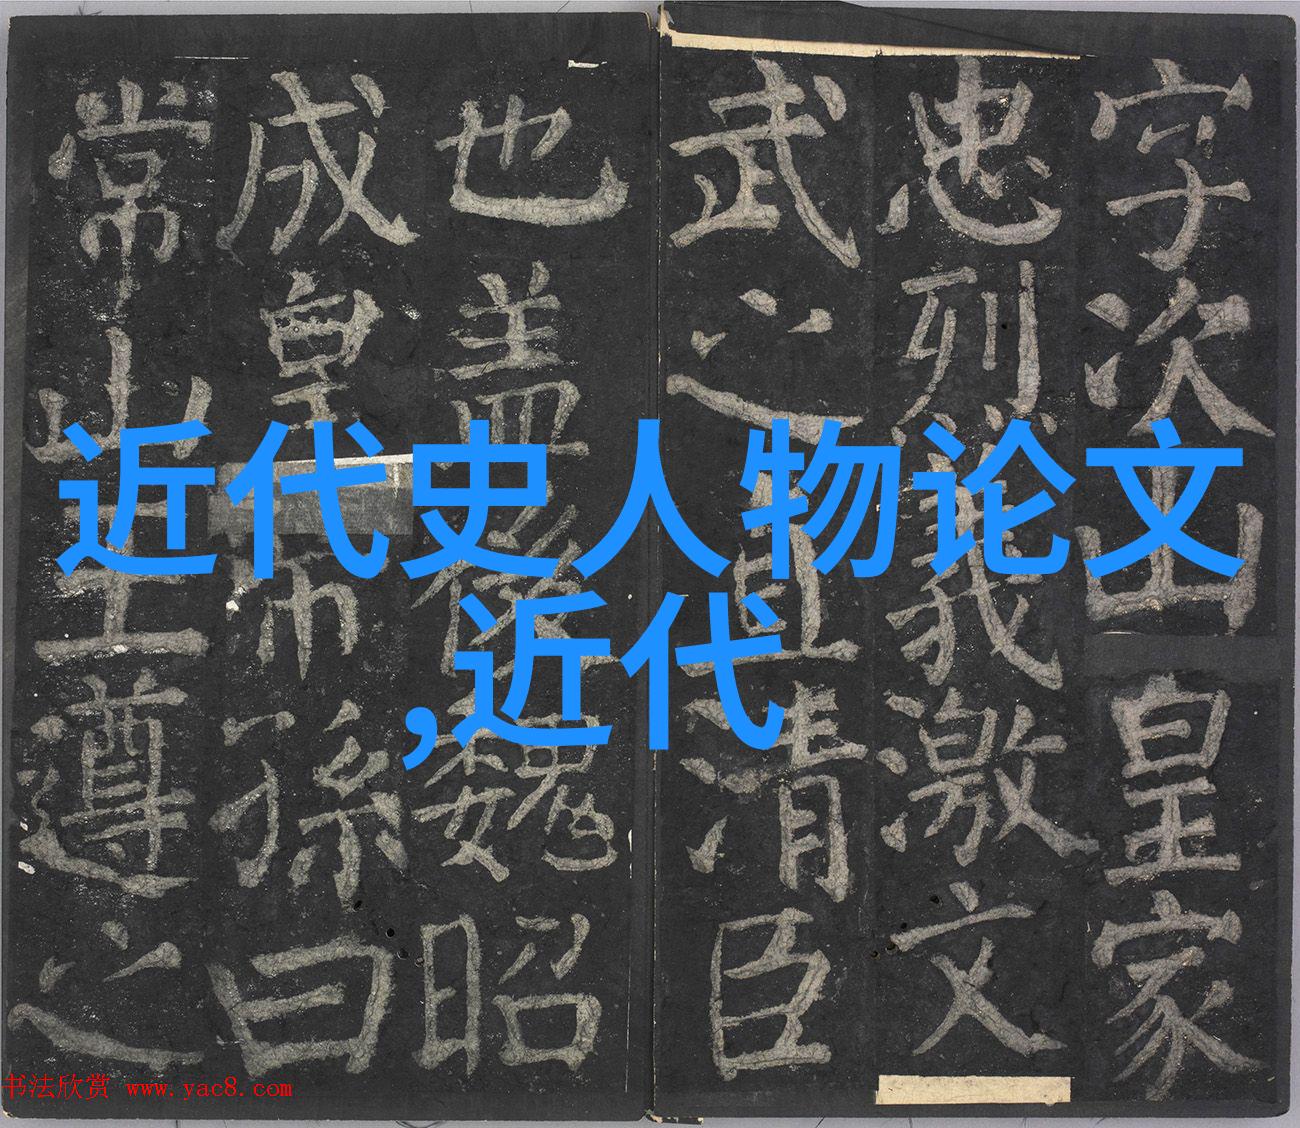 字次山皇家
忠烈義激文
武之直清臣
也盖後魏昭
成皇帝孫曰
常山王遵之
近代史人物论文
,近代
书法欣赏 www.yac8.com